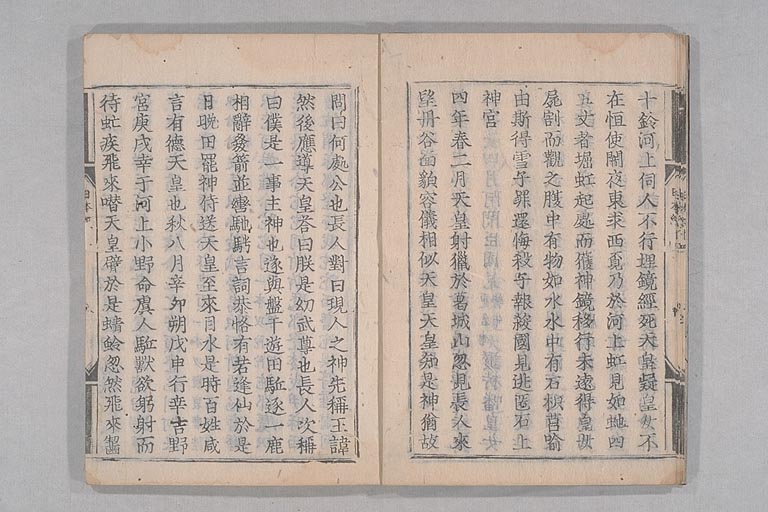 十鈴河上伺人不行埋鏡經死天皇疑皇女不
在恒使闇夜東求西覓乃於河上虹見如虵四
五丈者堀虹起處而獲神鏡移行未遠得皇女
屍割而觀之腹中有物如水水中有石枳莒喻
由斯得雪子罪還悔殺子報殺國見逃匿石上
神宮
四年春二月天皇射獵於葛城山忽見長人來
望丹谷面貌容儀相似天皇天皇知是神猶故
問曰何處公也長人對曰現人之神先稱王諱
然後應噵天皇荅曰朕是幼武尊也長人次稱
曰僕是一事主神也遂與盤于遊田駈逐一鹿
相辭發箭並轡馳騁言詞恭恪有若逢仙於是
日晩田罷神侍送天皇至來目水是時百姓咸
言有德天皇也秋八月辛卯朔戊申行幸吉野
宮庚戌幸于河上小野命虞人駈獸欲躬射而
待虻疾飛來噆天皇臂於是蜻蛉忽然飛來齧
日本